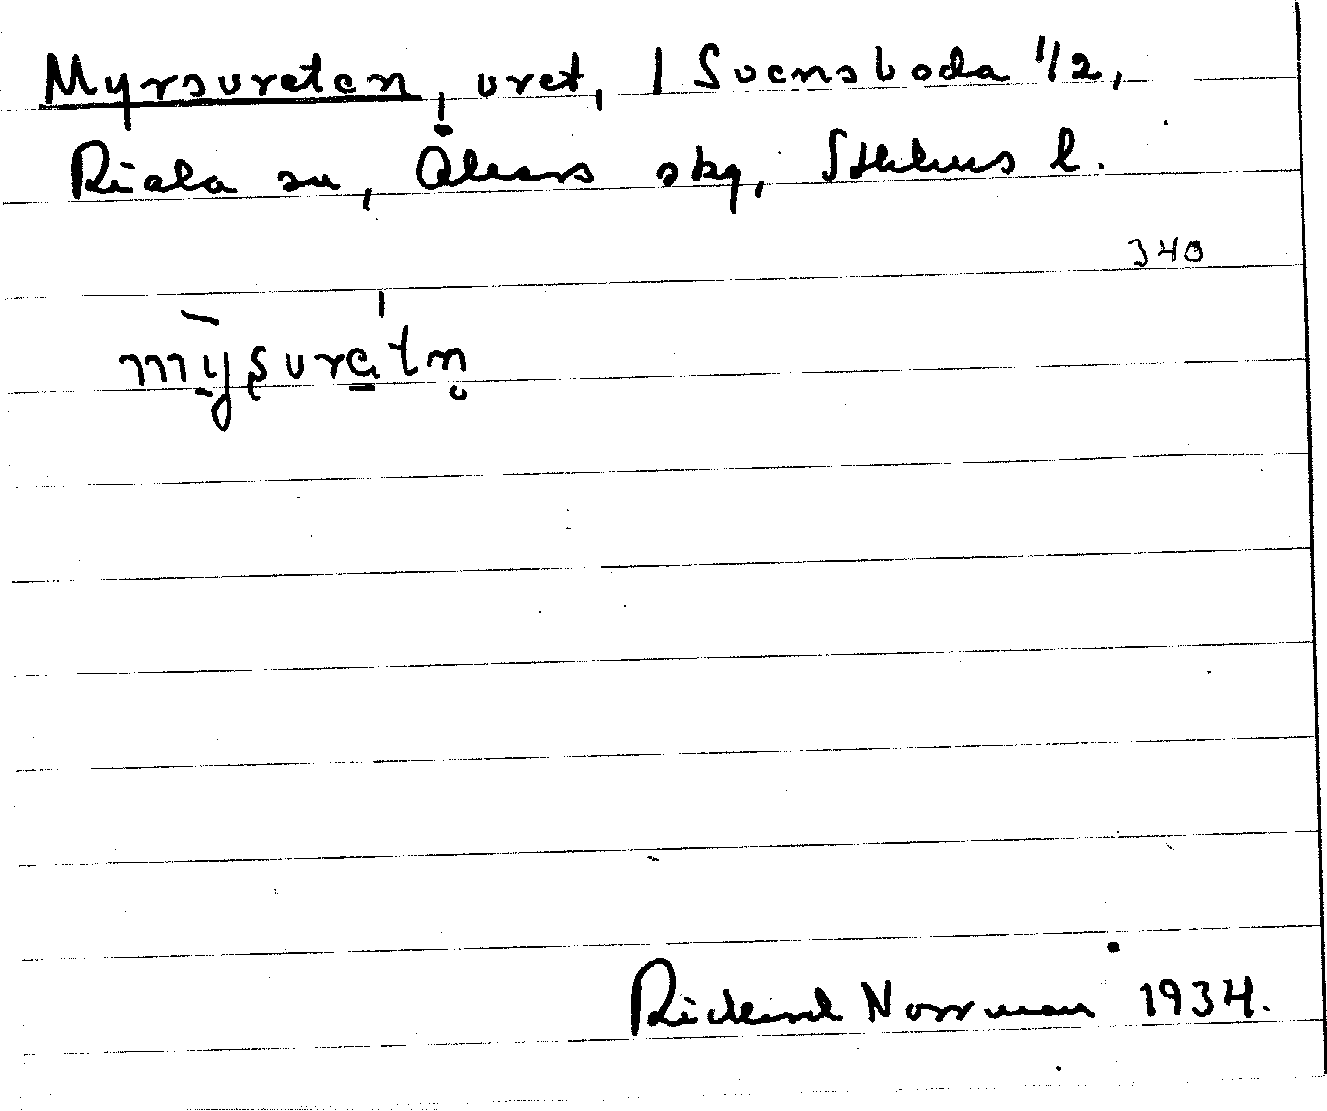 Myrsureten, uret, 1 Svensboda 1/2,
Riala sn, Åkers skg, Sthlms l.
340
mysuretn
Rickard Norrman 1934.